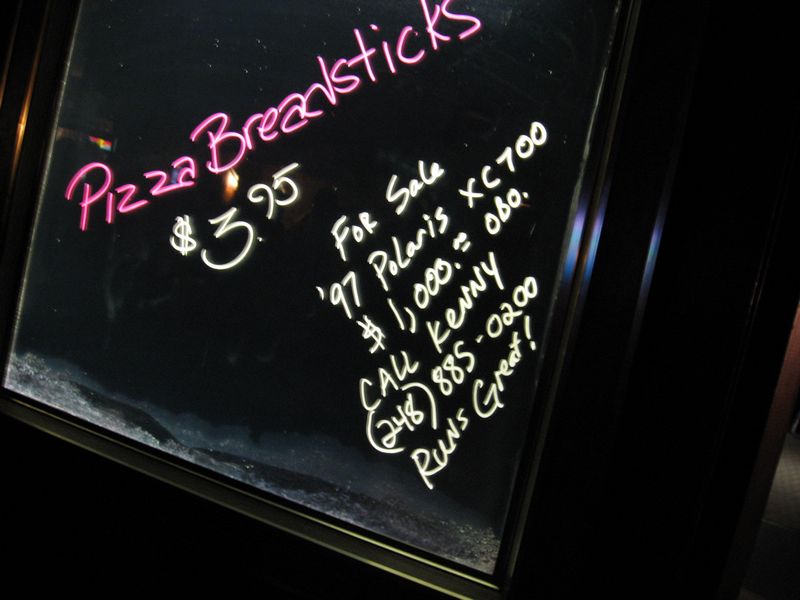 Pizza Breadsticks
$3.95
For Sale
'97 Polaris XC700
$1,000.00 OBO.
CALL KENNY
(248) 885-0200
Runs Great!